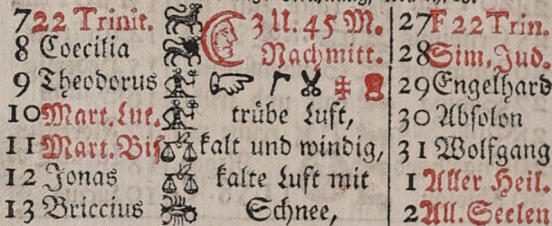 7 22 Trinit. 3 U. 45 M. 27 F 22 Trin.
8 Coecilia Nachmitt. 28 Sim. Jud.
9 Theodorus 29 Engelhard
10 Mart. Lut. trübe Luft, 30 Absolon
11 Mart. Bis kalt und windig, 31 Wolfgang
12 Jonas kalte Luft mit 1 Aller Heil.
13 Briccius Schnee, 2 All. Seelen